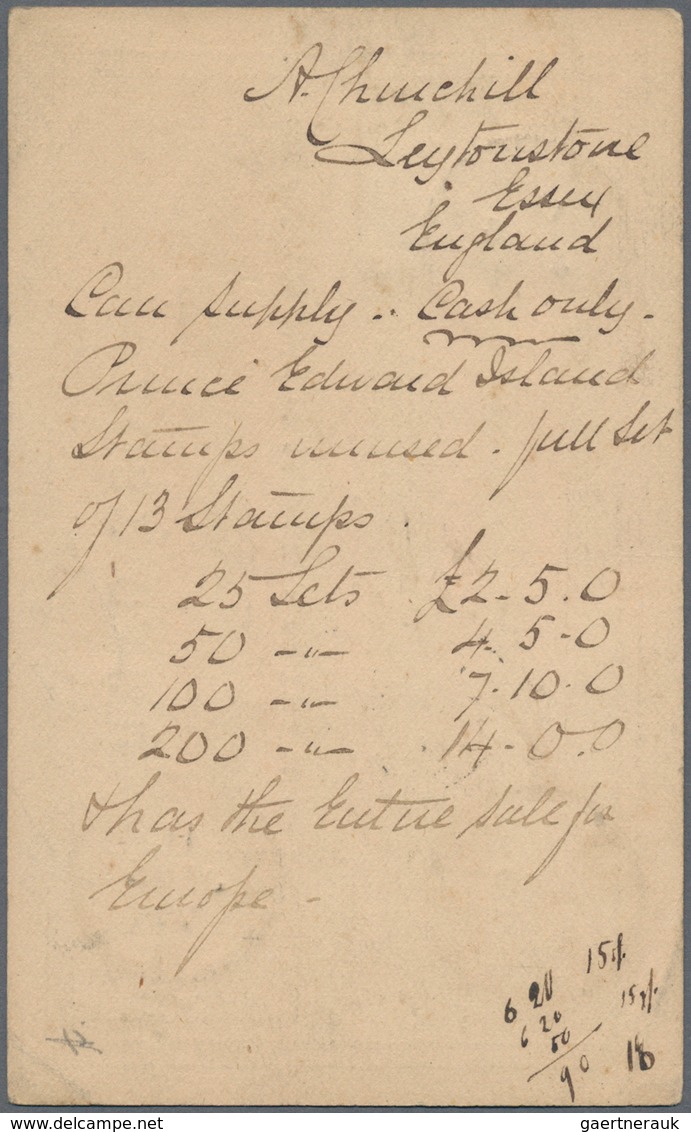 A. Churchill
Leytonstone
Essex
England
Can supply .. Cash only -
Prince Edward Island
Stamps unused . full Set
of 13 Stamps .
25 Sets £2 - 5 . 0
50 -"- 4 . 5 - 0
100 -"- 7 . 10 . 0
200 -"- 14 - 0 . 0
& has the Entire sale for
Europe -
6 20
6 20
50
90
18
gaertnerauk